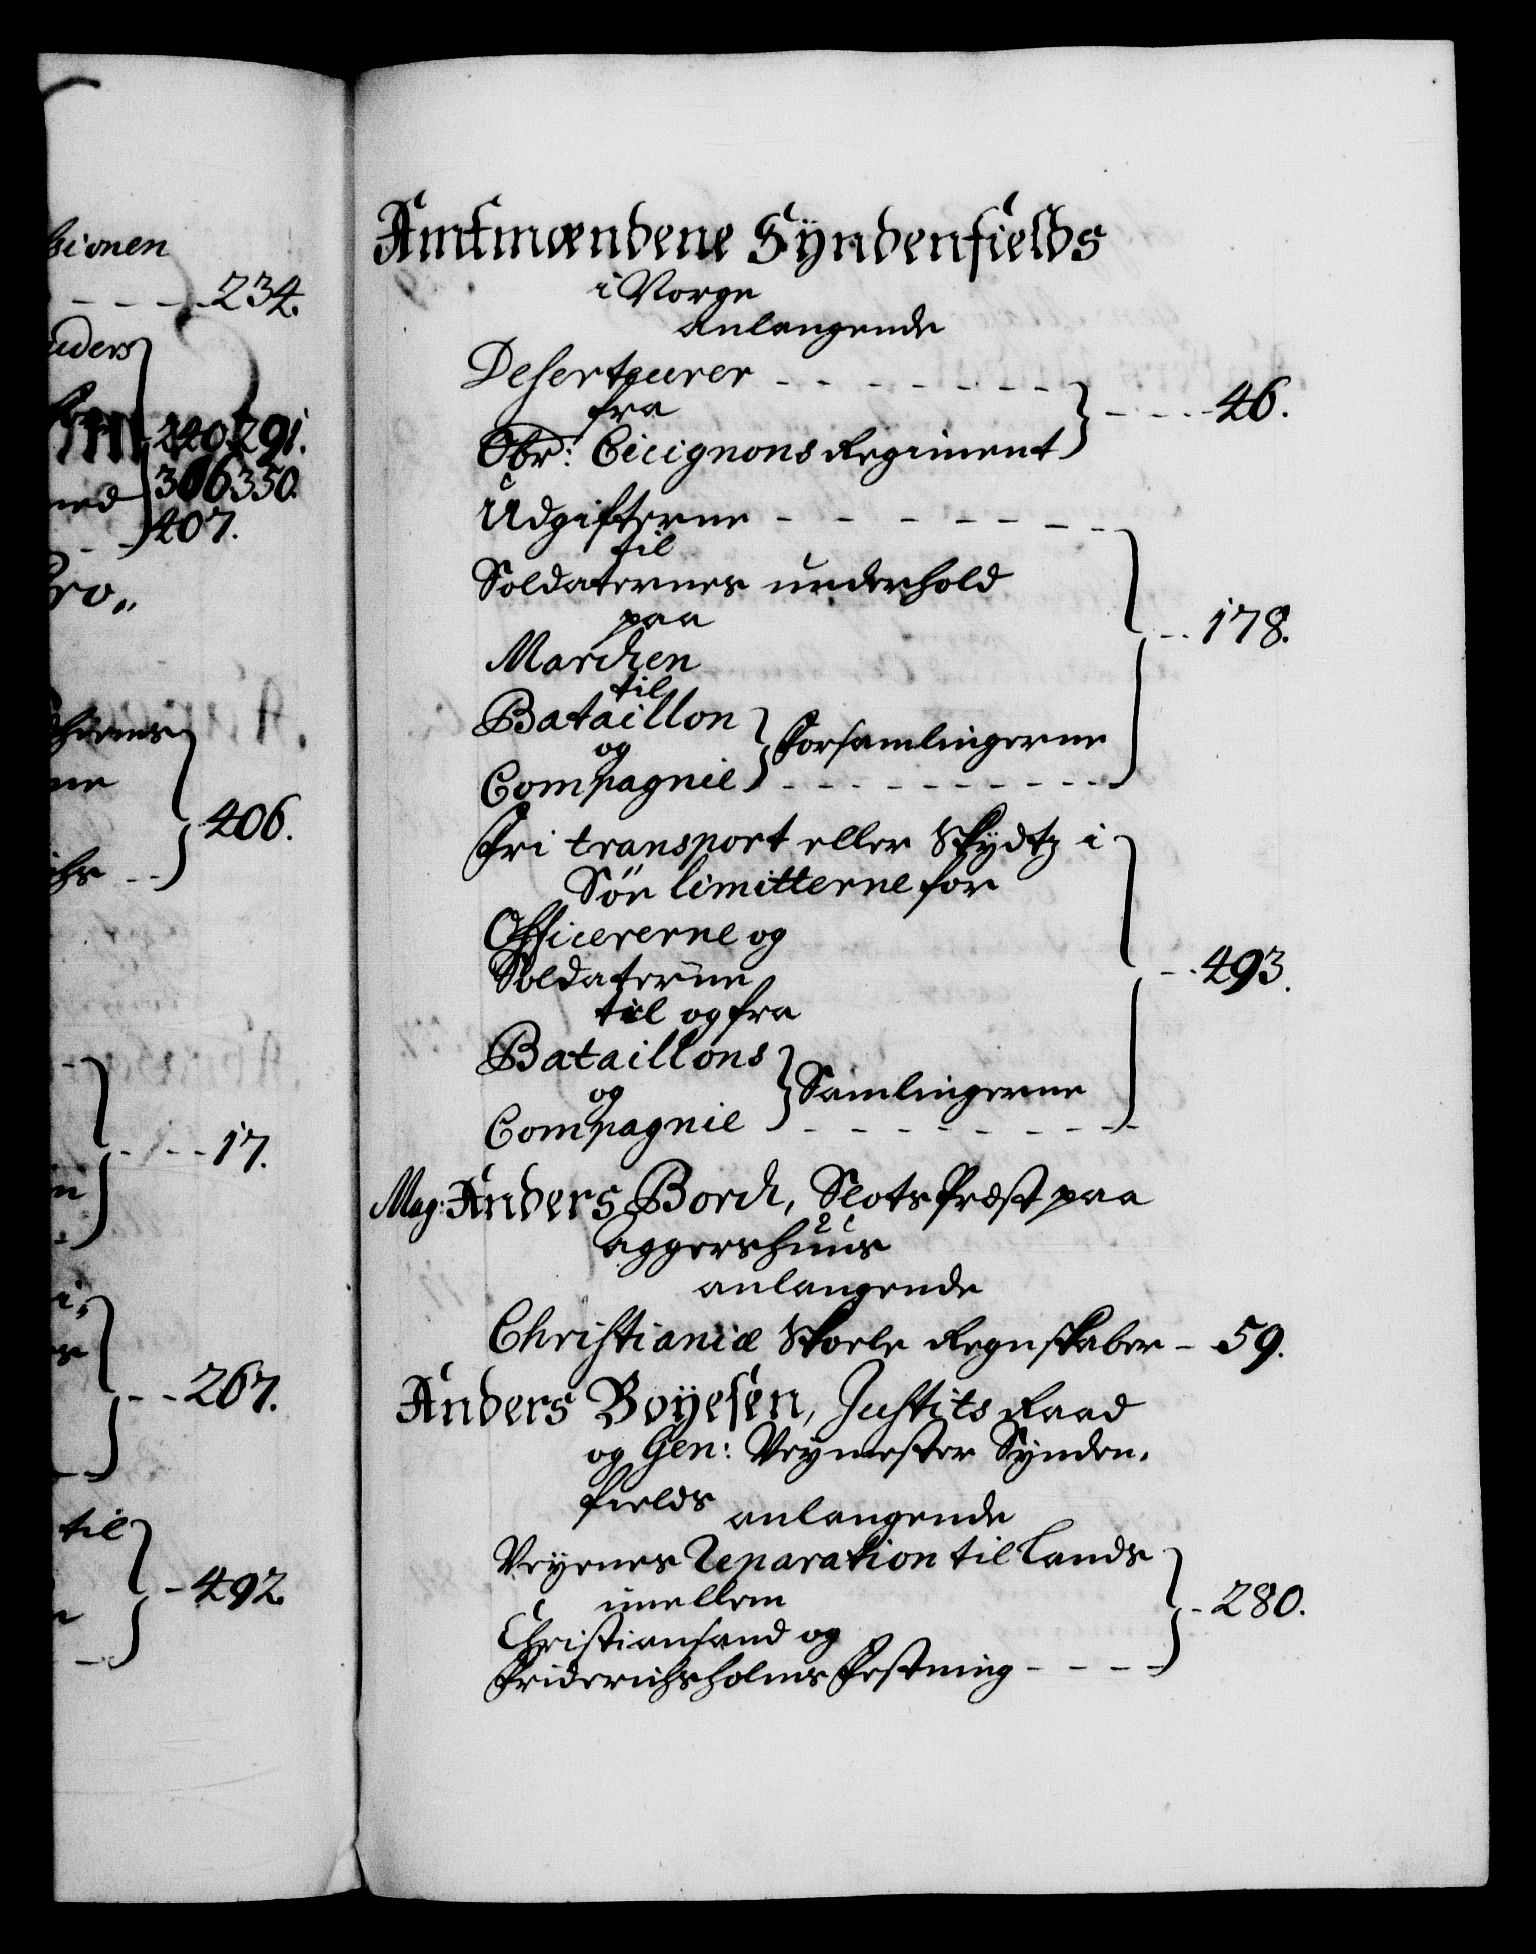 sionen
234.
uders
240 291.
306 350.
ned
407.
pro„
406.
17.
267.
til
492.
Amtmændene Syndenfields
i Norge
anlangende
Deserteurer
fra
Obr: Cicignons Regiment
46.
Udgifterne
til
Soldaternes underhold
paa
Marchen
til
Bataillon
og
Compagnie
Forsamlingerne
178.
Fri transport eller Skydtz i
Søe limitterne for
Officererne og
Soldaterne
til og fra
Bataillons
og
Compagnie
Samlingerne
493.
Mag: Anders Borch, Slots Præst paa
Aggershuus
anlangende
Christianiæ Skoele Regnskaber - 59.
Anders Boyesen, Justits Raad
og Gen: Veymester Synden,
fields
anlangende
Veyenes Reparation til Lands
imellem
Christiansand og
Friderichsholms Festning
280.